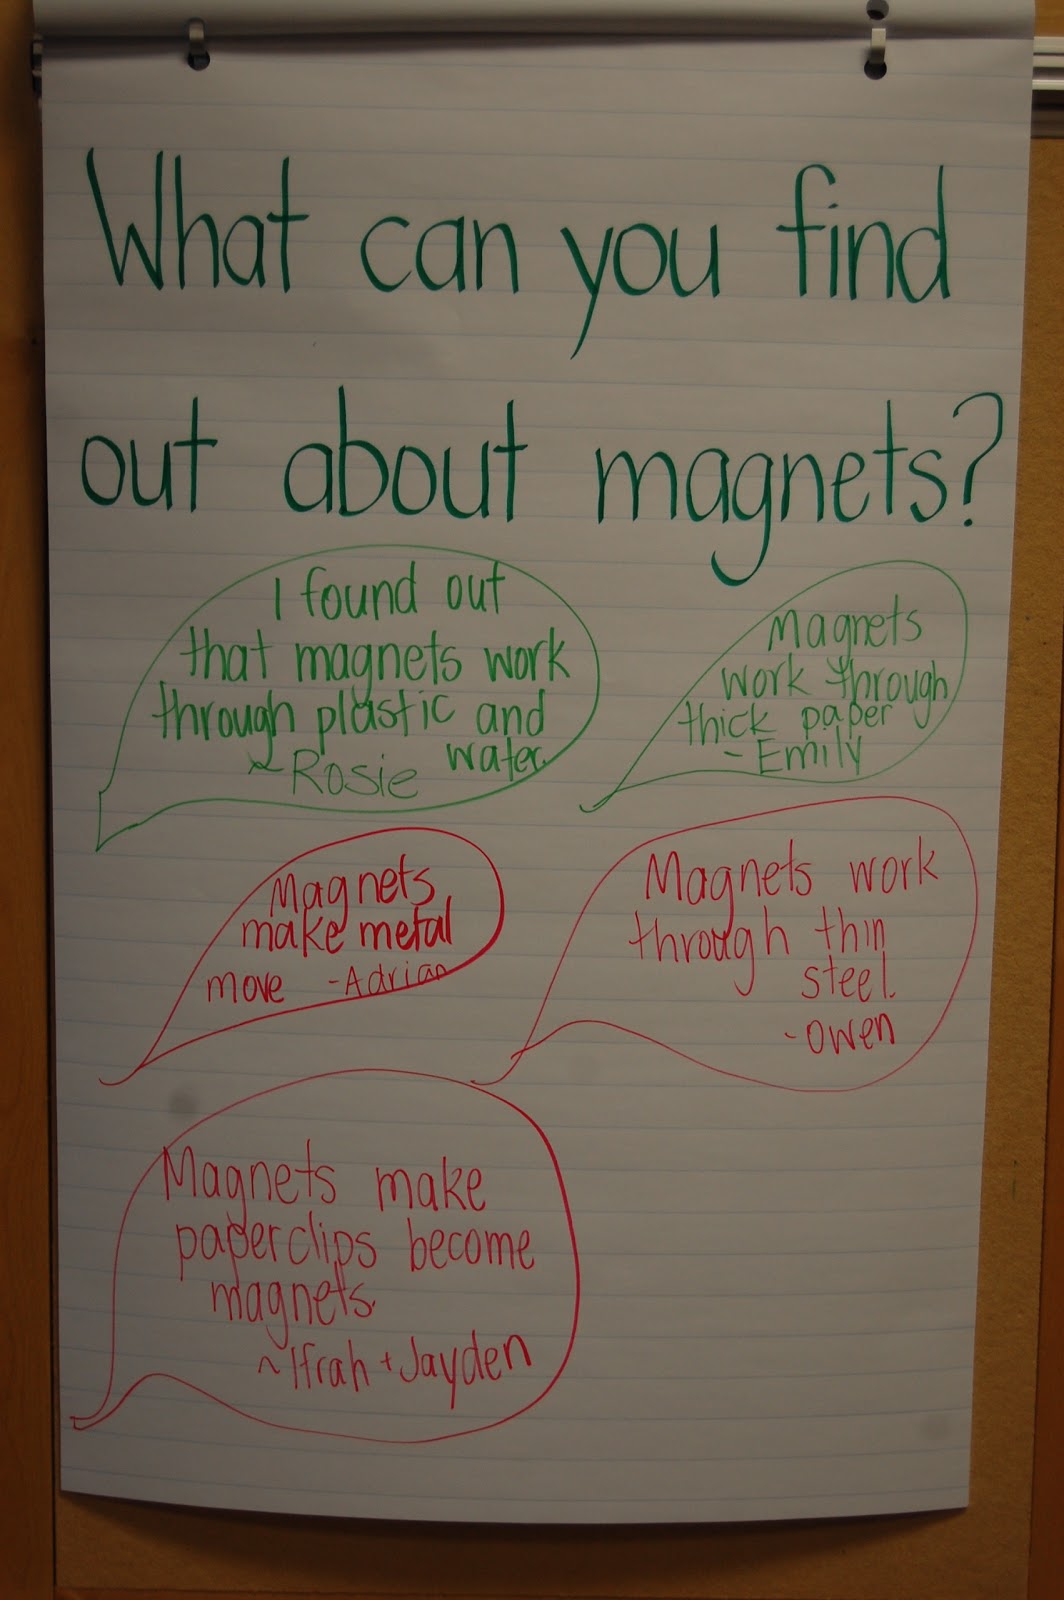 What can you find
out about magnets?
I found out
that magnets work
through plastic and
water.
~Rosie
Magnets
work through
thick paper
-Emily
Magnets
make metal
move -Adrian
Magnets work
through thin
steel.
-Owen
Magnets make
paperclips become
magnets.
~Ifrah + Jayden